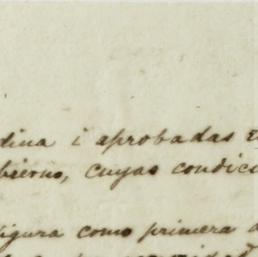 dina i aprobadas
bierno, cuyas condic
figura como primera